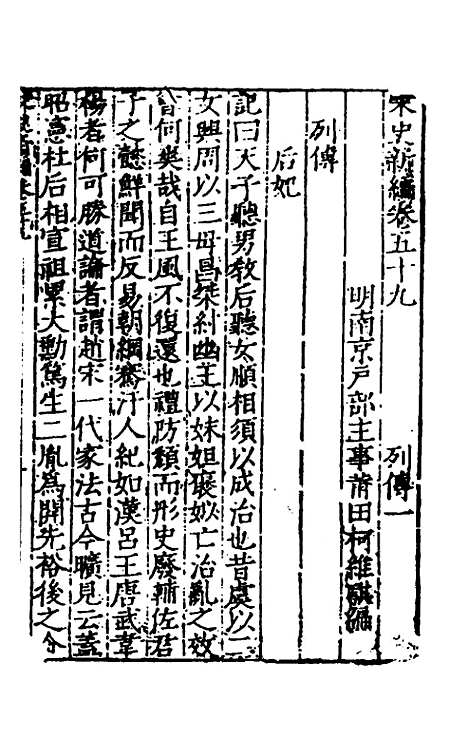 宋史新編卷五十九　列傳一
明南京戶部主事莆田柯維騏編
列傳
后妃
記曰天子聽男教后聽女順相須以成治也昔虞以二
女興周以三母昌桀紂幽王以妺妲褒姒亡治亂之效
昔何奭哉自王風不復還也禮防頹而彤史廢輔佐君
子之懿鮮聞而反易朝綱瀆汙人紀如漢呂王唐武韋
楊者何可勝道論者謂趙宋一代家法古今曠見云蓋
昭憲杜后相宣祖累大勳篤生二胤為開先裕後之